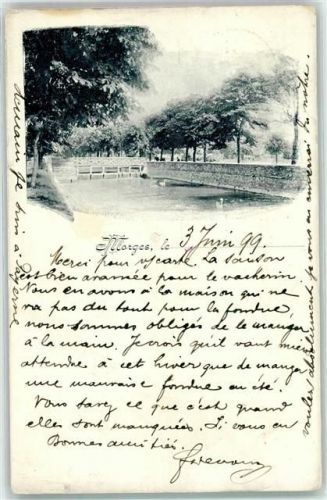 Morges, le 3 Juin 99.
Merci pour v/carte. La saison
est bien avancée pour le vacherin
Nous en avons à la maison qui ne
va pas du tout pour la fondue,
nous sommes obligés de le manger
à la main. Je crois qu'il vaut mieux
attendre à cet hiver que de manger
une mauvaise fondue en été.
Vous savez ce que c'est quand
elles sont manquées. Si vous en
voulez absolument je vous en enverrai de notre
Je suis à
Bonnes amitiés.